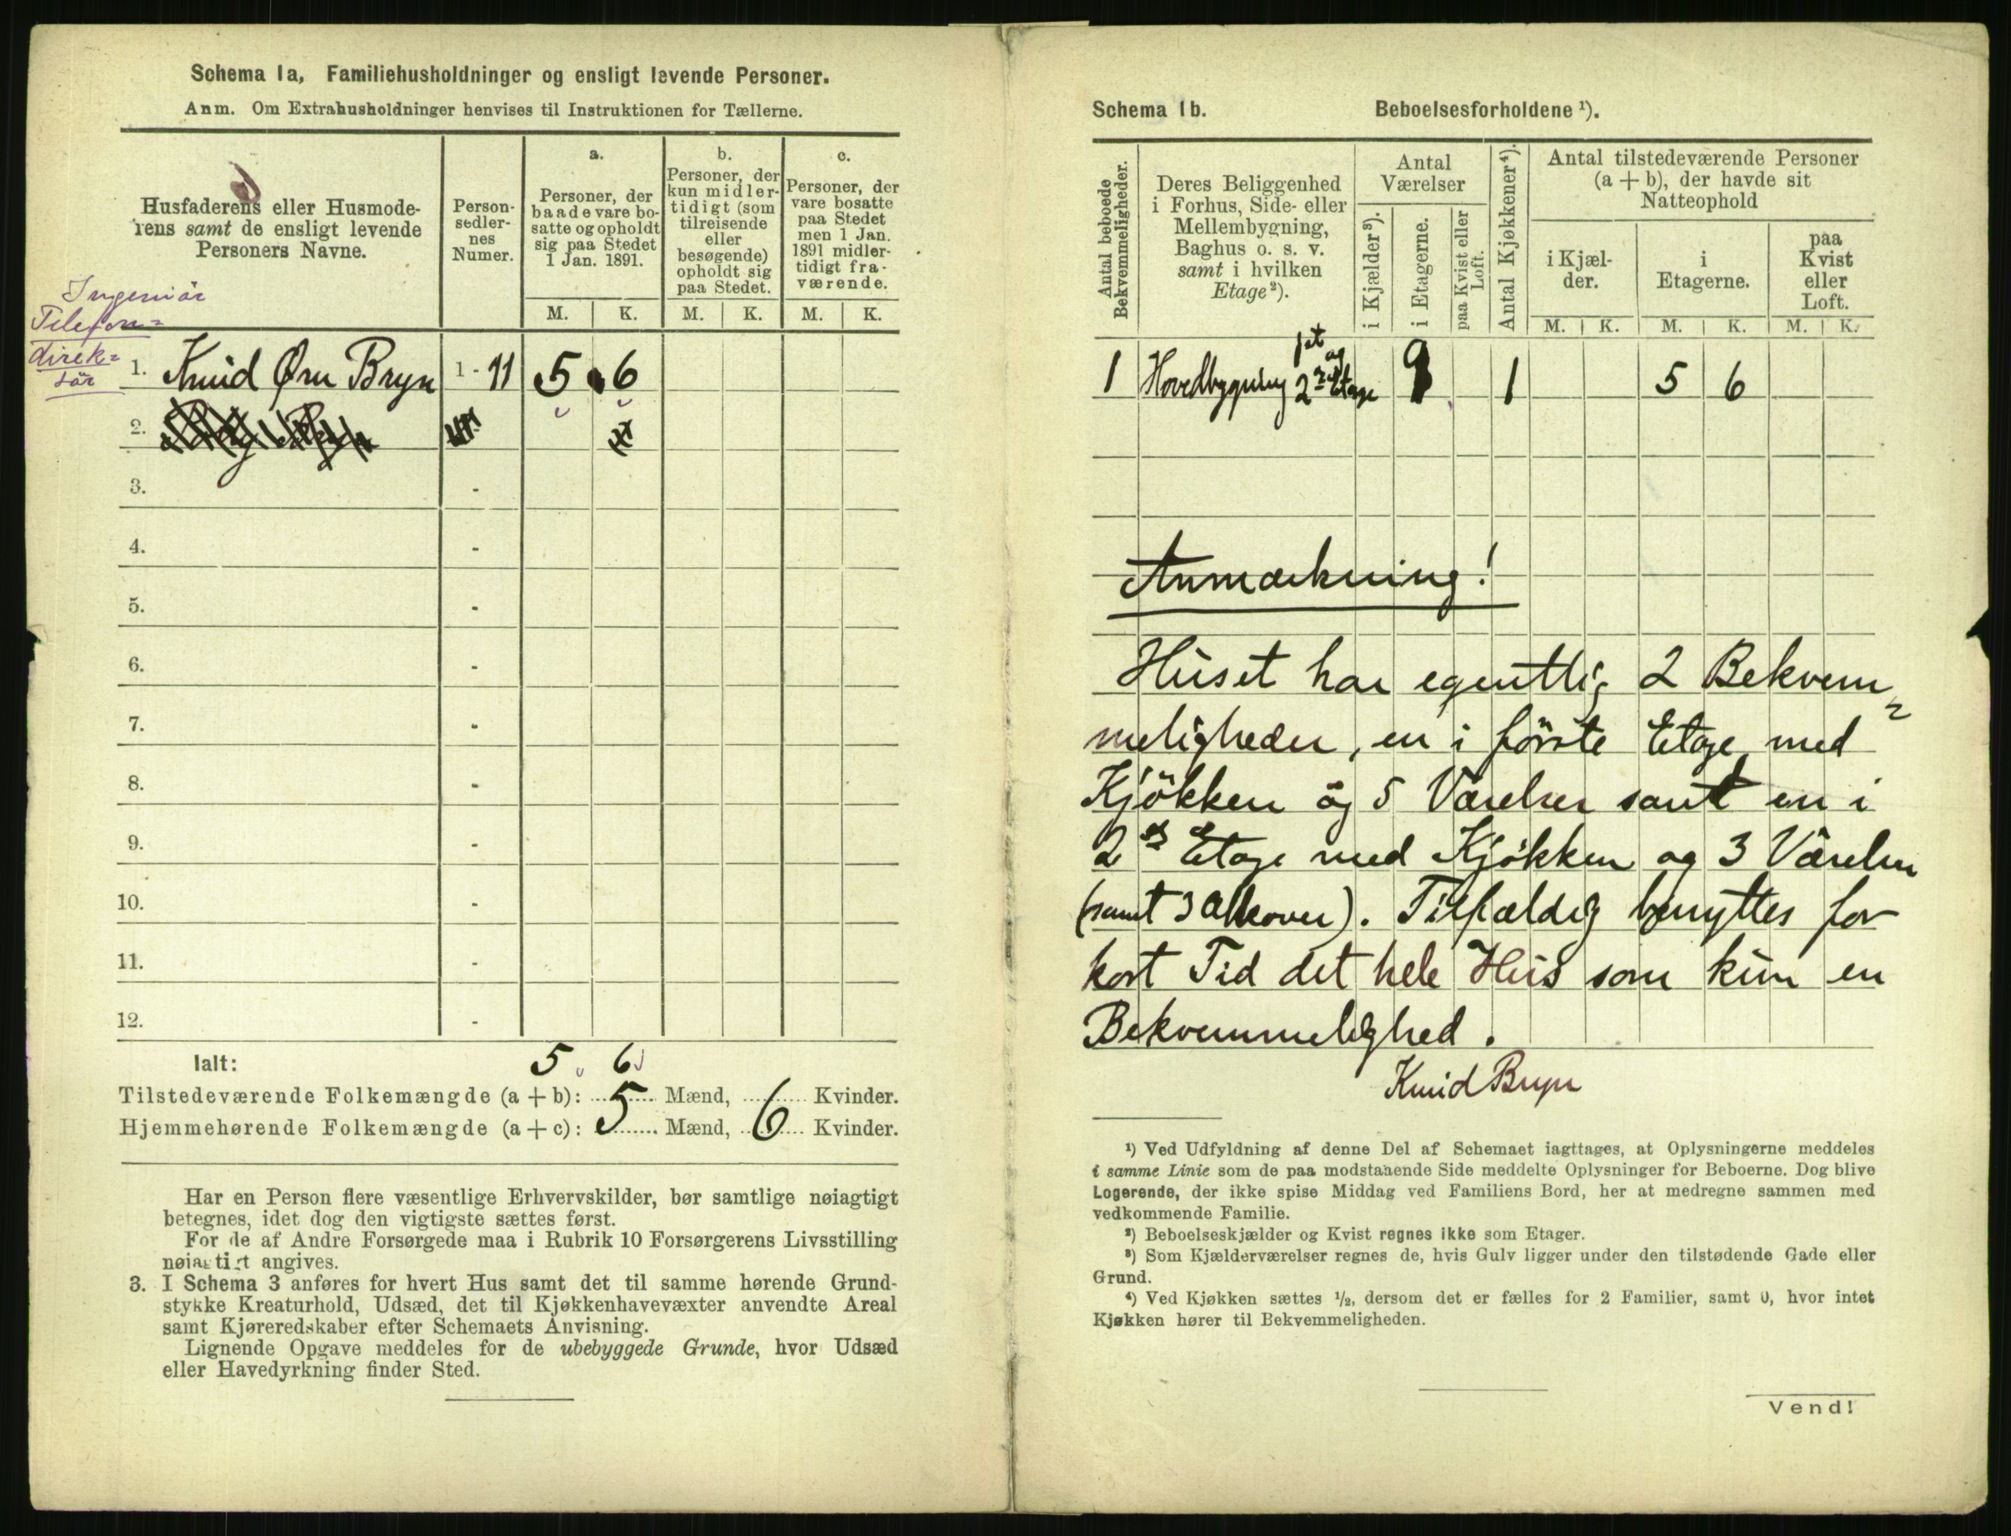 Schema 1a, Familiehusholdninger og ensligt levende Personer.
Anm. Om Extrahusholdninger henvises til Instruktionen for Tællerne.
Husfaderens eller Husmode-
rens samt de ensligt levende
Personers Navne.
Person-
sedler-
nes
Numer.
a.
Personer, der
baade vare bo-
satte og opholdt
sig paa Stedet
1 Jan. 1891.
b.
Personer, der
kun midler-
tidigt (som
tilreisende
eller
besøgende)
opholdt sig
paa Stedet.
c.
Personer, der
vare bosatte
paa Stedet
men 1 Jan.
1891 midler-
tidigt fra-
værende.
M. K. M. K. M. K.
Ingeniör
Telefon=
direk=
tör
1. Knud Örn Bryn 1 - 11 5 6
2.
3. -
4. -
5. -
6. -
7. -
8. -
9. -
10. -
11. -
12. -
Ialt: 5 6
Tilstedeværende Folkemængde (a + b): 5 Mænd, 6 Kvinder.
Hjemmehørende Folkemængde (a + c): 5 Mænd, 6 Kvinder.
Har en Person flere væsentlige Erhvervskilder, bør samtlige nøiagtigt
betegnes, idet dog den vigtigste sættes først.
For de af Andre Forsørgede maa i Rubrik 10 Forsørgerens Livsstilling
nøiagtigt angives.
3. I Schema 3 anføres for hvert Hus samt det til samme hørende Grund-
stykke Kreaturhold, Udsæd, det til Kjøkkenhavevæxter anvendte Areal
samt Kjøreredskaber efter Schemaets Anvisning.
Lignende Opgave meddeles for de ubebyggede Grunde, hvor Udsæd
eller Havedyrkning finder Sted.
Schema 1b. Beboelsesforholdene ¹).
Antal beboede
Bekvemmeligheder.
Deres Beliggenhed
i Forhus, Side- eller
Mellembygning,
Baghus o. s. v.
samt i hvilken
Etage²).
Antal
Værelser
i Kjælder³).
i Etagerne.
paa Kvist eller
Loft.
Antal Kjøkkener⁴).
Antal tilstedeværende Personer
(a + b), der havde sit
Natteophold
i Kjæl-
der.
i
Etagerne.
paa
Kvist
eller
Loft.
M. K. M. K. M. K.
1 Hovedbygning 1st og 2den Etage 9 1 5 6
Anmærkning!
Huset har egentlig 2 Bekvem=
meligheder, en i første Etage med
Kjökken og 5 Værelser samt en i
2den Etage med Kjökken og 3 Værelser
(samt 3 Alkover). Tilfældig benyttes for
kort Tid det hele Hus som kun en
Bekvemmelighed.
Knud Bryn
¹) Ved Udfyldning af denne Del af Schemaet iagttages, at Oplysningerne meddeles
i samme Linie som de paa modstaaende Side meddelte Oplysninger for Beboerne. Dog blive
Logerende, der ikke spise Middag ved Familiens Bord, her at medregne sammen med
vedkommende Familie.
²) Beboelseskjælder og Kvist regnes ikke som Etager.
³) Som Kjælderværelser regnes de, hvis Gulv ligger under den tilstødende Gade eller
Grund.
⁴) Ved Kjøkken sættes ½, dersom det er fælles for 2 Familier, samt 0, hvor intet
Kjøkken hører til Bekvemmeligheden.
Vend!